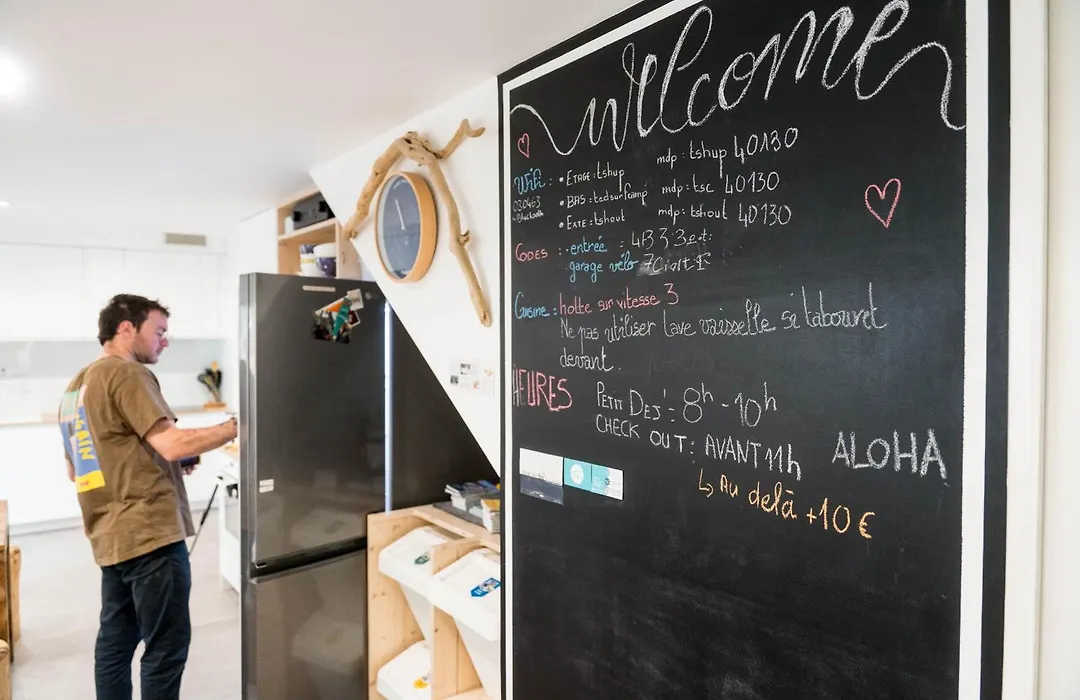 Welcome
Wifi : • ETAGE : tshup mdp : tshup 40130
• BAS : tedsurfcamp mdp : tsc 40130
• EXTE : tshout mdp : tshout 40130
CODES : - entrée :
garage vélo
Cuisine : hotte sur vitesse 3
Ne pas utiliser lave vaisselle si tabouret
devant.
HEURES PETIT DEJ' : 8h - 10h
CHECK OUT : AVANT 11h
ALOHA
↳ Au delà +10€
AGAIN